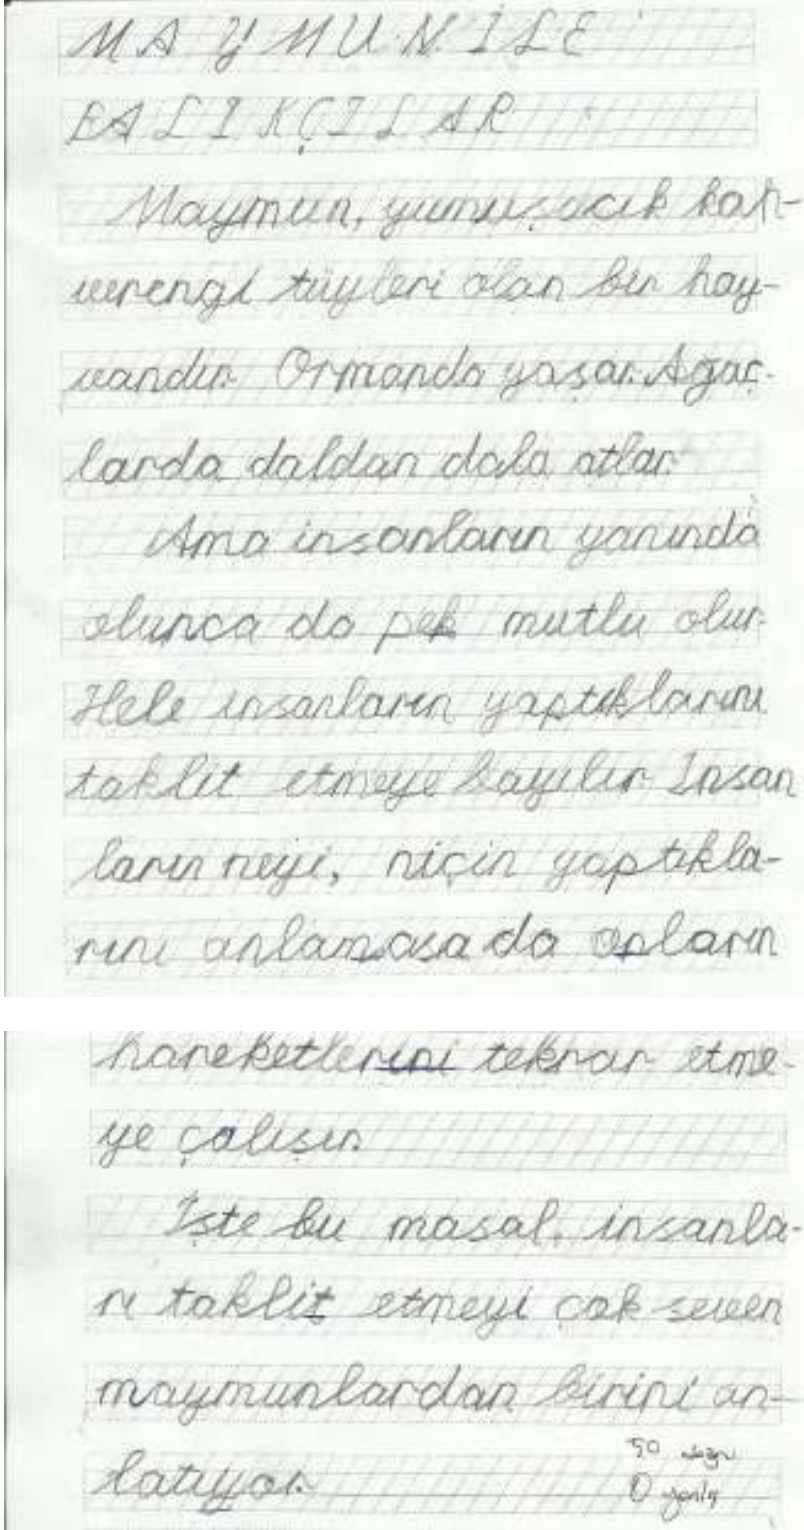 MAYMUN İLE
BALIKÇILAR
Maymun, yumuşacık kah-
verengi tüyleri olan bir hay-
vandır. Ormanda yaşar. Ağaç-
larda daldan dala atlar.
Ama insanların yanında
olunca da pek mutlu olur.
Hele insanların yaptıklarını
taklit etmeye bayılır. İnsan
ların neyi, niçin yaptıkla-
rını anlamasa da onların
hareketlerini tekrar etme-
ye çalışır.
İşte bu masal, insanla-
rı taklit etmeyi çok seven
maymunlardan birini an-
latıyor.
50 doğru
0 yanlış